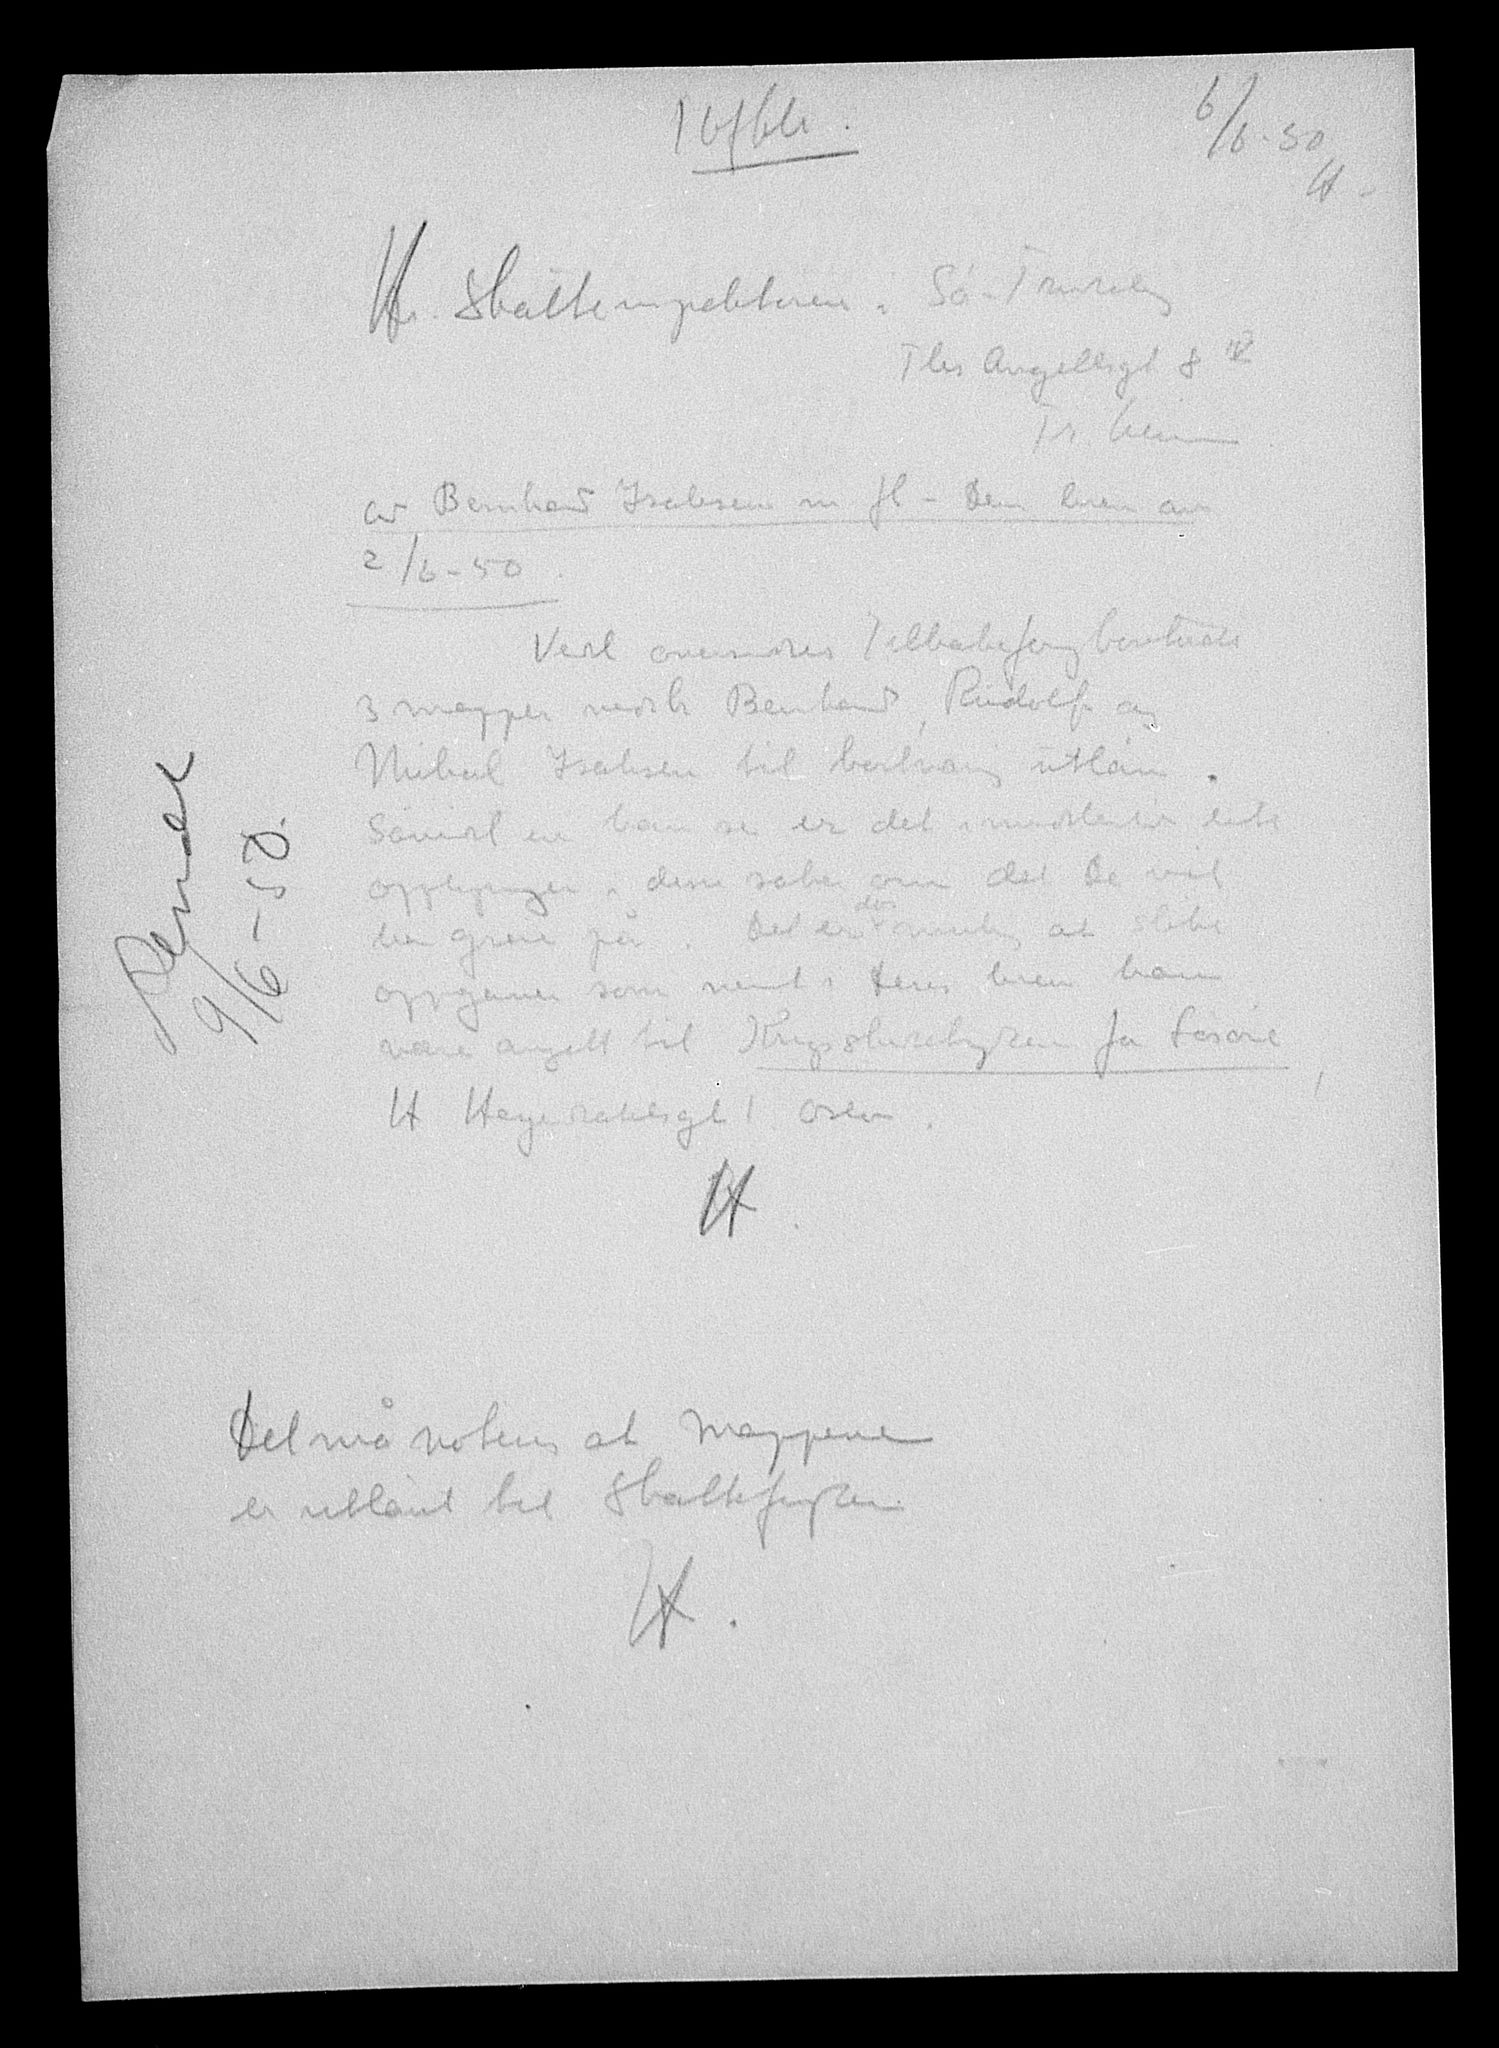 6/6-50
H-
Hr. Skatteinspektøren i Sö-Trøndelag
Ths Angellsgt 8 IV
Tr.heim
av Bernhard Isaksen m fl - Dem brev av
2/6-50.
Vedl oversendes
3 mapper vedr Bernhard, Rudolf og
Mikal Isaksen til utlån.
Såvidt en kan se er det imidlertid ikke
opplysninger i disse saker om det De vil
ha greie på. Det er mulig at slike
oppgaver som nevnt i Deres brev kan
være avgitt til Krigsskadetrygden for Løsøre,
H Heyerdahlsgt 1. Oslo.
H.
Det må noteres at mappene
er utlånt til Skattefogden
H.
9/6-50.